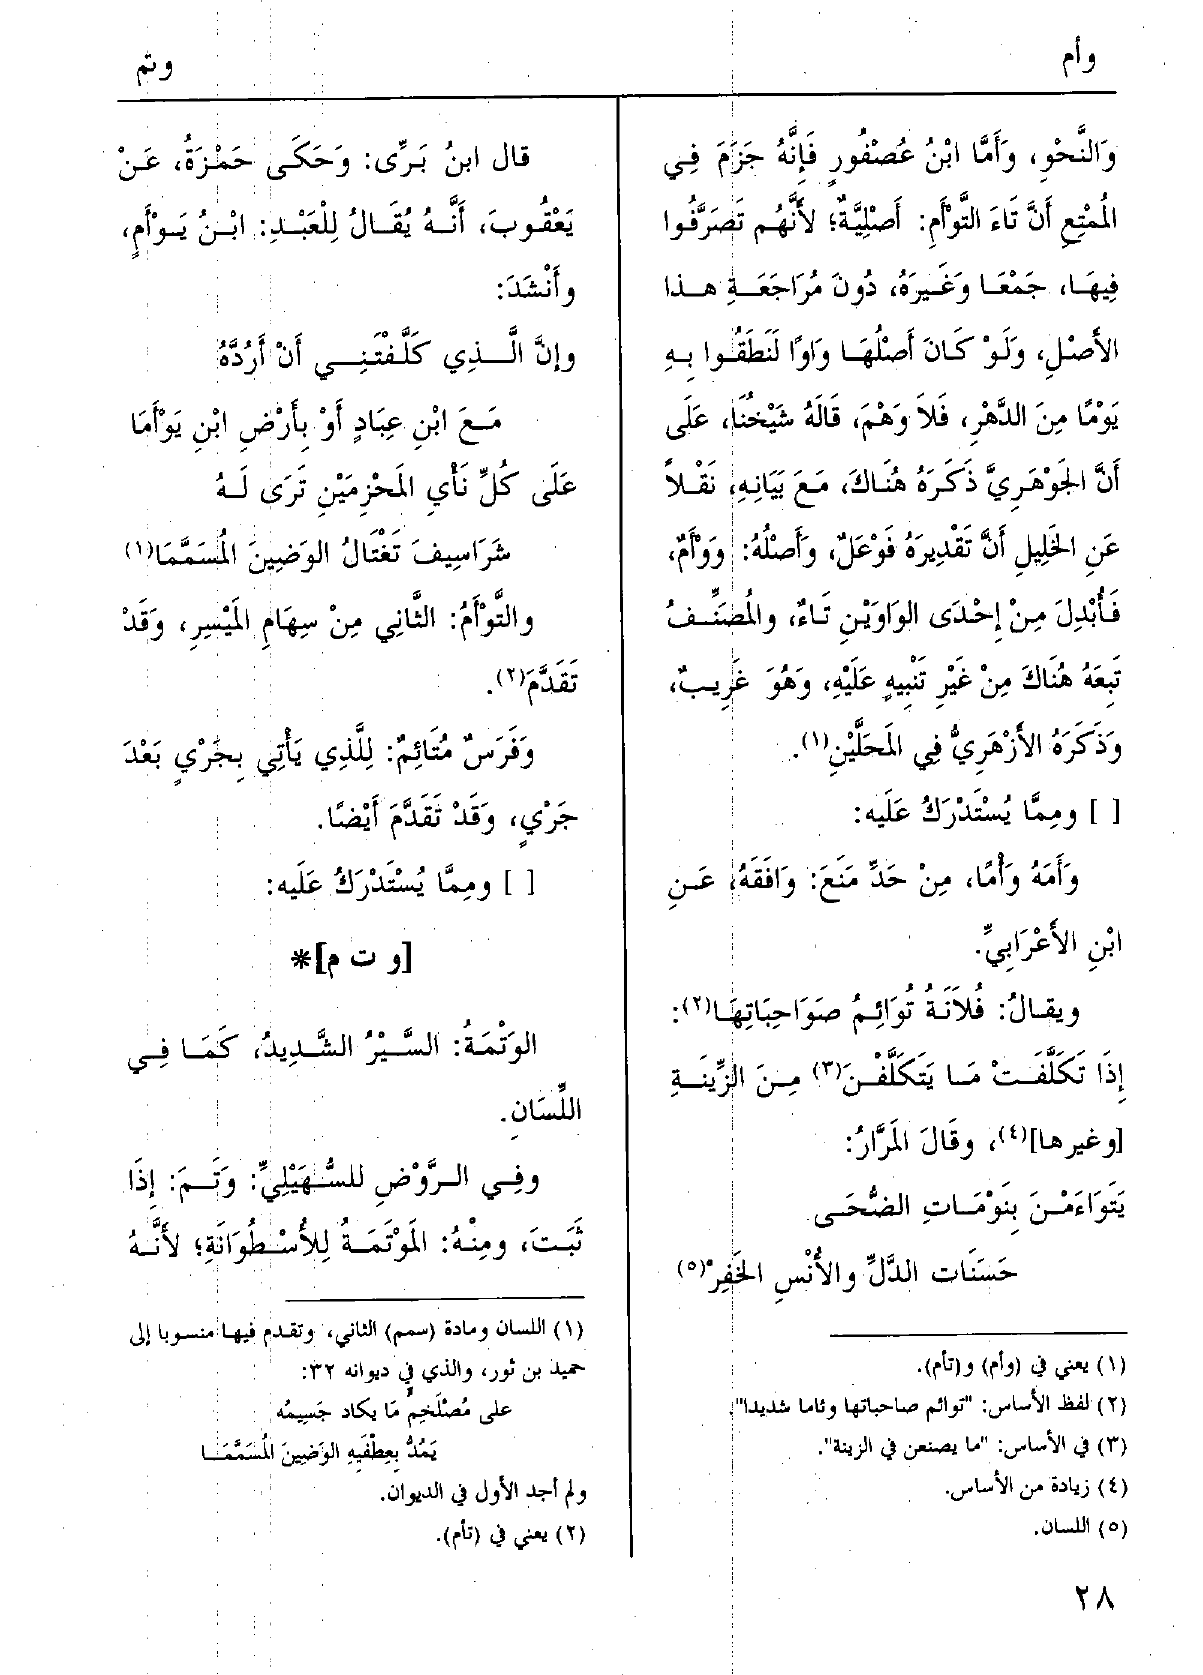 وأم
وتم
وَالنَّحْوِ، وَأَمَّا ابْنُ عُصْفُورٍ فَإِنَّهُ جَزَمَ فِي
المُمْتِعِ أَنَّ تَاءَ التَّوْأَمِ: أَصْلِيَّةٌ؛ لأَنَّهُم تَصَرَّفُوا
فِيهَا، جَمْعًا وَغَيرَهُ، دُونَ مُرَاجَعَةِ هذا
الأَصْلِ، وَلَوْ كَانَ أَصْلُهَا وَاوًا لَنَطَقُوا بِهِ
يَوْمًا مِنَ الدَّهْرِ، فَلاَ وَهْمَ، قَالَهُ شَيْخُنَا، عَلَى
أَنَّ الجَوْهَرِيَّ ذَكَرَهُ هُنَاكَ، مَعَ بَيَانِهِ، نَقْلاً
عَنِ الخَلِيلِ أَنَّ تَقْدِيرَهُ فَوْعَلٌ، وَأَصْلُهُ: وَوْأَمٌ،
فَأُبْدِلَ مِنْ إِحْدَى الوَاوَيْنِ تَاءٌ، والمُصَنِّفُ
تَبِعَهُ هُنَاكَ مِنْ غَيْرِ تَنْبِيهٍ عَلَيْهِ، وَهُوَ غَرِيبٌ،
وَذَكَرَهُ الأَزْهَرِيُّ فِي المَحَلَّيْنِ(١).
[ ] ومِمَّا يُسْتَدْرَكُ عَلَيه:
وَأَمَهُ وَأْمًا، مِنْ حَدِّ مَنَعَ: وَافَقَهُ، عَنِ
ابْنِ الأَعْرَابِيِّ.
ويقالُ: فُلاَنَةُ تُوَائِمُ صَوَاحِبَاتِهَا(٢):
إِذَا تَكَلَّفَتْ مَا يَتَكَلَّفْنَ(٣) مِنَ الزِّينَةِ
[وغيرها](٤)، وقَالَ المَرَّارُ:
يَتَوَاءَمْنَ بِنَوْمَاتِ الضُّحَى
حَسَنَات الدَّلِّ والأُنْسِ الخَفِرْ(٥)
(١) يعني في (وأم) و(تأم).
(٢) لفظ الأساس: "توائم صاحباتها وئاما شديدا".
(٣) في الأساس: "ما يصنعن في الزينة".
(٤) زيادة من الأساس.
(٥) اللسان.
قال ابنُ بَرِّى: وَحَكَى حَمْزَةُ، عَنْ
يَعْقُوبَ، أَنَّهُ يُقَالُ لِلْعَبْدِ: ابْنُ يَوْأَمٍ،
وأَنْشَدَ:
وإِنَّ الَّذِي كَلَّفْتَنِي أَنْ أَرُدَّهُ
مَعَ ابْنِ عِبَادٍ أَوْ بِأَرْضِ ابْنِ يَوْأَمَا
عَلَى كُلِّ نَأْيِ المَحْزِمَيْنِ تَرَى لَهُ
شَرَاسِيفَ تَغْتَالُ الوَضِينَ المُسَمَّمَا(١)
والتَّوْأَمُ: الثَّانِي مِنْ سِهَامِ المَيْسِرِ، وَقَدْ
تَقَدَّمَ(٢).
وَفَرَسٌ مُتَائِمٌ: لِلَّذِي يَأْتِي بِجَرْيٍ بَعْدَ
جَرْيٍ، وَقَدْ تَقَدَّمَ أَيْضًا.
[ ] ومِمَّا يُسْتَدْرَكُ عَلَيه:
[و ت م]*
الوَتْمَةُ: السَّيْرُ الشَّدِيدُ، كَمَا فِي
اللِّسَانِ.
وفِي الرَّوْضِ للسُّهَيْلِيِّ: وَتَمَ: إِذَا
ثَبَتَ، ومِنْهُ: المَوْتَمَةُ لِلأُسْطُوَانَةِ؛ لأَنَّهُ
(١) اللسان ومادة (سمم) الثاني، وتقدم فيها منسوبا إلى
حميد بن ثور، والذي في ديوانه ٣٢:
على مُصْلَخِمٍّ مَا يكاد جَسِيمُه
يَمُدُّ بِعِطْفَيهِ الوَضِينَ المُسَمَّمَا
ولم أجد الأول في الديوان.
(٢) يعني في (تأم).
٢٨